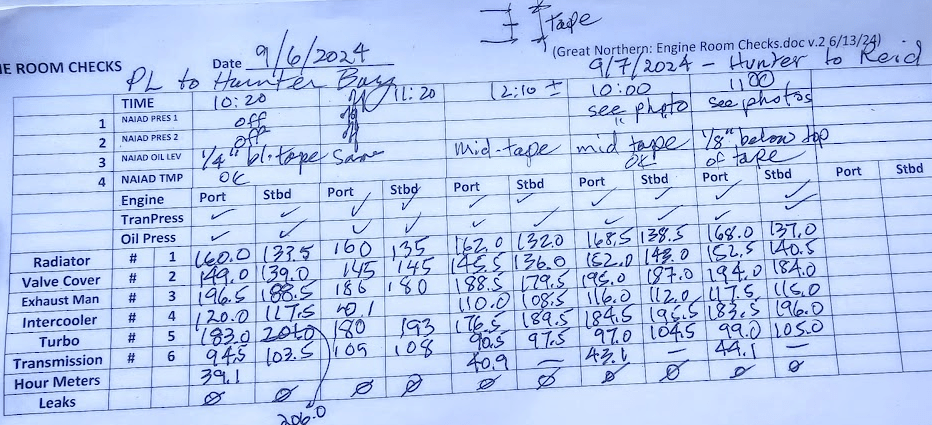 I I tape
(Great Northern: Engine Room Checks.doc v.2 6/13/24)
NE ROOM CHECKS Date 9/6/2024 9/7/2024 - Hunter to Reid
PL to Hunter Bay
TIME 10:20 11:20 12:10 ± 10:00 1100
1 NAIAD PRES 1 off see photo see photos
2 NAIAD PRES 2 off " "
3 NAIAD OIL LEV 1/4" bl. tape same mid-tape mid tape 1/8" below top
4 NAIAD TMP OK OK of tape
Engine Port Stbd Port Stbd Port Stbd Port Stbd Port Stbd Port Stbd
TranPress ✓ ✓ ✓ ✓ ✓ ✓ ✓ ✓ ✓ ✓
Oil Press ✓ ✓ ✓ ✓ ✓ ✓ ✓ ✓ ✓ ✓
Radiator # 1 160.0 133.5 160 135 162.0 132.0 168.5 138.5 168.0 137.0
Valve Cover # 2 149.0 139.0 145 145 145.5 136.0 152.0 143.0 152.5 140.5
Exhaust Man # 3 196.5 188.5 186 180 188.5 179.5 195.0 187.0 194.0 184.0
Intercooler # 4 120.0 117.5 110.0 108.5 116.0 112.0 117.5 115.0
Turbo # 5 183.0 180 193 176.5 189.5 184.5 195.5 183.5 196.0
Transmission # 6 94.5 103.5 109 108 90.5 97.5 97.0 104.5 99.0 105.0
Hour Meters 39.1 40.1 40.9 – 43.1 – 44.1 –
Leaks Ø Ø Ø Ø Ø Ø Ø Ø Ø Ø
206.0